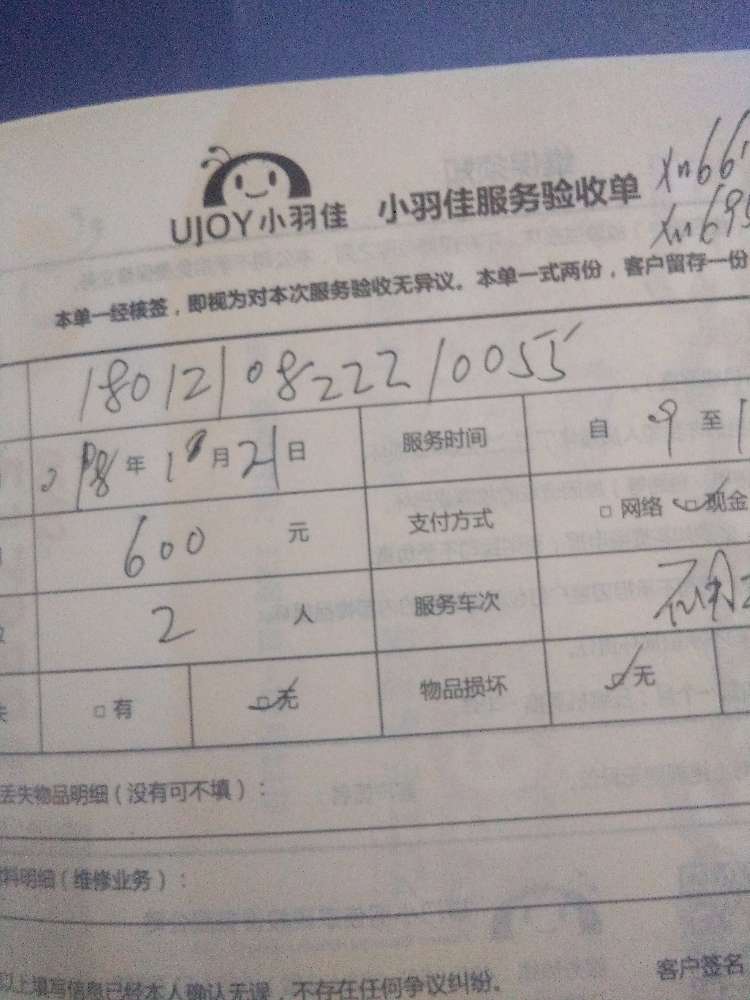 xn66
UJOY小羽佳 小羽佳服务验收单
xn695
本单一经核签，即视为对本次服务验收无异议。本单一式两份，客户留存一份
18012108222210055
18年1月21日 服务时间 自 9 至 1
600 元 支付方式 □网络 □现金
2 人 服务车次
□有 □无 物品损坏 □无
丢失物品明细（没有可不填）：
料明细（维修业务）：
以上填写信息已经本人确认无误，不存在任何争议纠纷。
客户签名